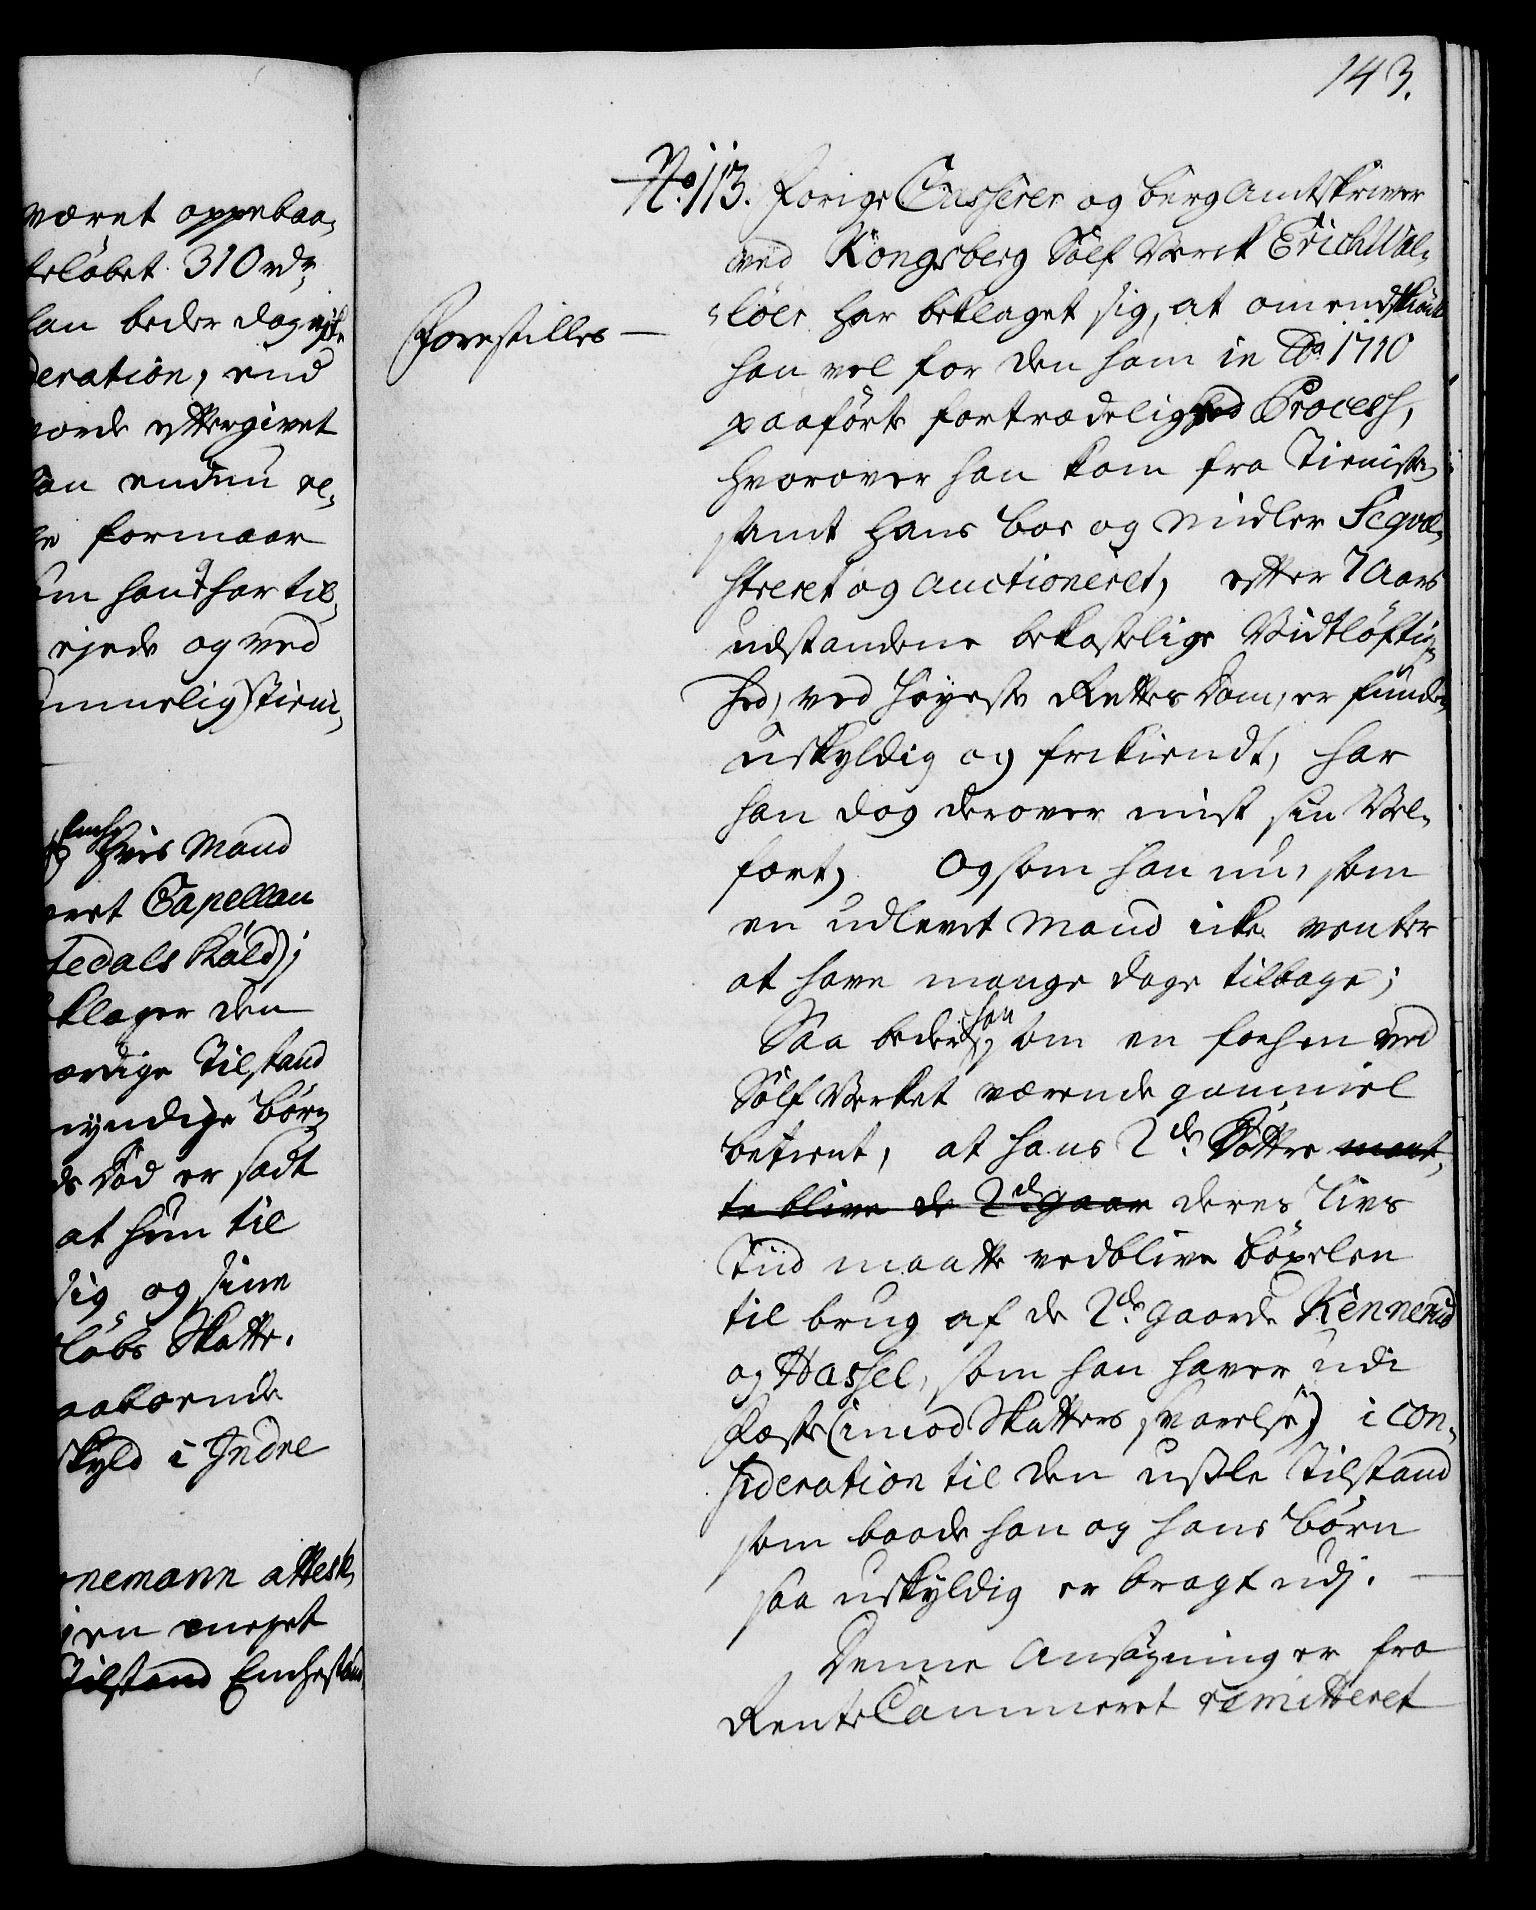 været oppebaa,
beløbet 310 rdr
han beder dog ikke
deration, end
vorde eftergivet
kan endnu re,
le formaar
som han har til,
ejede og ved
ummelig) tieni,
Enche
hvis Mand
veret Capellan
tedals Kald);
klager den
værdige Tilstand
myndige børn
ds Død er sadt
at hun til
sig og sine
løbs Skatte.
paaboende
skyld i Indre
nemann attest,
meget
Tilstand Enchestand
143.
No. 113. Forige Casserer og berg Amtskriver
ved Kongsberg Sølf Verck Erich Wal,
Forestilles —
løer har beklaget sig, at omendskiønt
han vel for den ham in Ao. 1710
paaførte fortrædelighed Process,
hvorover han kom fra Tieniste,
samt hans boe og midler Seqvæ,
streret og auctioneret, efter 7 Aars
udstandene bekostelige Vidtløftig,
hed, ved høyeste Rettes Dom, er funden
uskyldig og frikiendt, har
han dog derover mist sin Vel,
fart, Og som han nu, som
en udlevet Mand icke venter
at have mange dage tilbage;
Saa beder han, som en forhen ved
Sølf Verket værende gammel
betient, at hans 2de Døttre maat,
te blive de 2de gaar deres Livs
Tiid maatte vedblive bøxelen
til brug af de 2de gaarde Kennerud
og Hassel, som han haver udi
Fæste (imod Skatters svarelse) i con,
sideration til den usle Tilstand
som baade han og hans børn
saa uskyldig er bragt udj. —
Denne Ansøgning er fra
Rente Cammeret remitteret